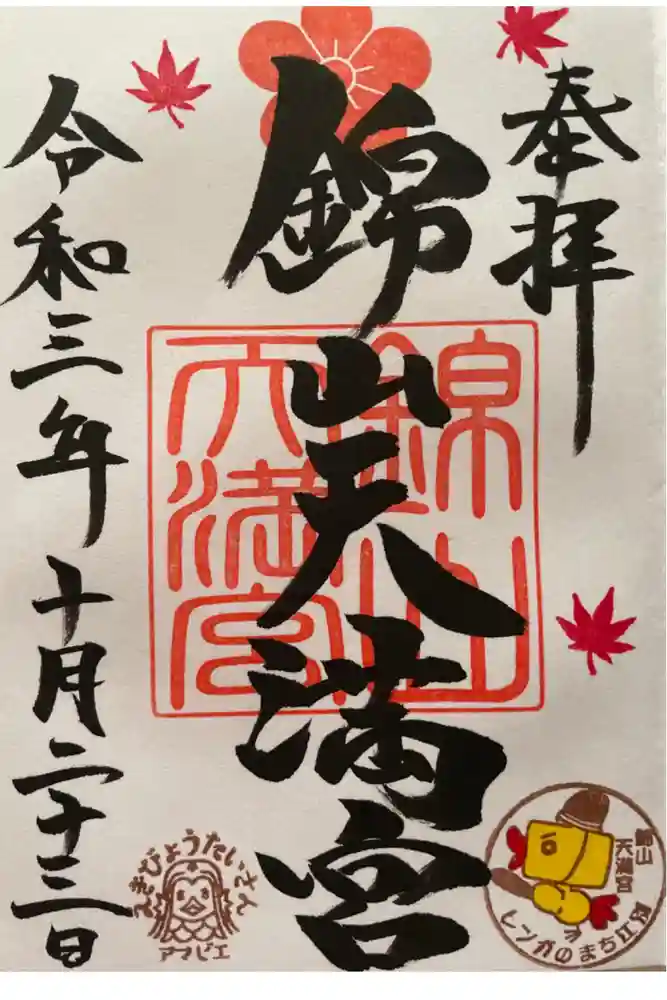 奉拝
錦山天満宮
令和三年十月二十三日
錦山
天満宮
えきびょうたいさん
アマビエ
錦山
天満宮
レンガのまち江別